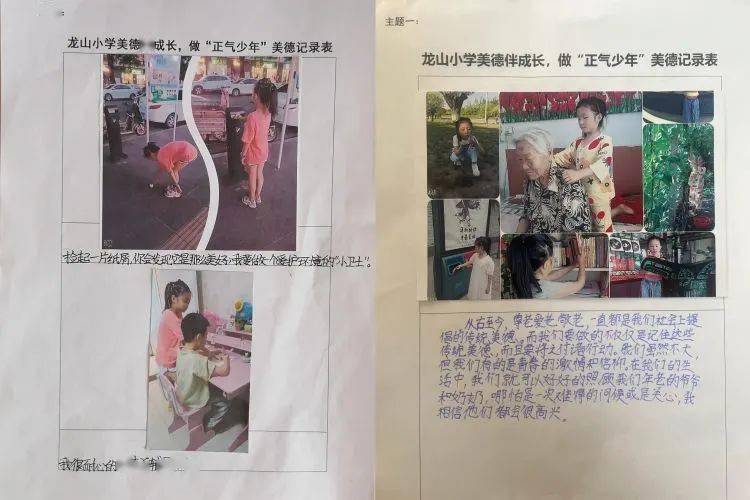 龙山小学美德 成长，做“正气少年”美德记录表
捡起一片纸屑，你会发现它是那么美好，我要做一个爱护环境的“小卫士”。
我很耐心的
主题一：
龙山小学美德伴成长，做“正气少年”美德记录表
从古至今，尊老爱老敬老，一直都是我们社会上提
倡的传统美德，而我们要做的不仅仅是记住这些
传统美德，而且要将之付诸行动。我们虽然不大，
但我们有的是青春的激情和信仰，在我们的生
活中，我们就可以好好的照顾我们年老的爷爷
和奶奶，哪怕是一次难得的问候或是关心，我
相信他们都会很高兴。